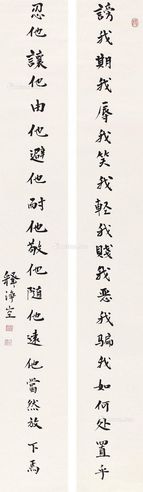 謗我期我辱我笑我輕我賤我惡我騙我如何处置乎
忍他讓他由他避他耐他敬他隨他遠他當然放下焉
釋淨空